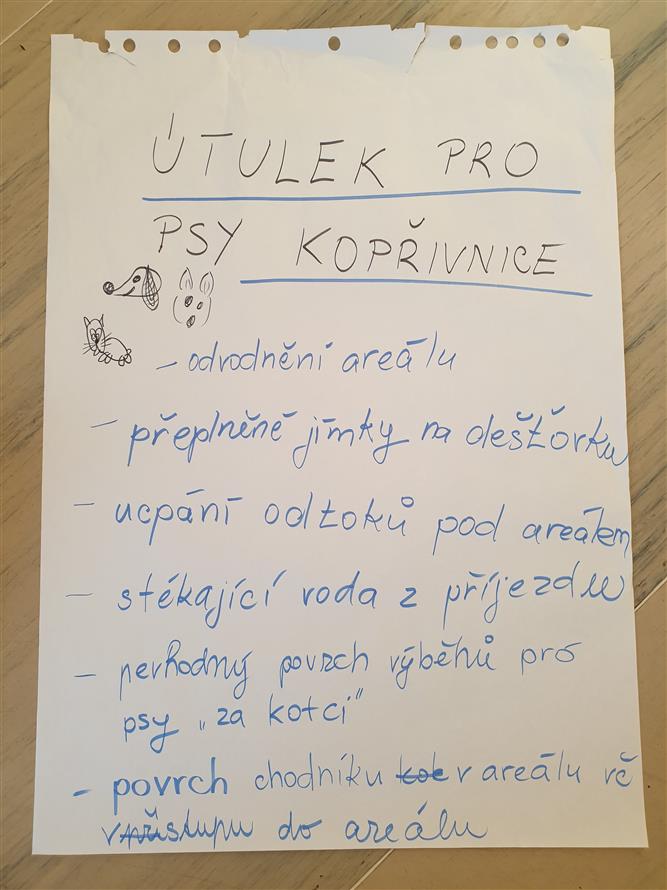 ÚTULEK PRO
PSY KOPŘIVNICE
- odvodnění areálu
- přeplněné jímky na dešťovku
- ucpání odtoků pod areálem
- stékající voda z příjezdu
- nevhodný povrch výběhů pro
psy „za kotci"
- povrch chodníku v areálu vč
vstupu do areálu